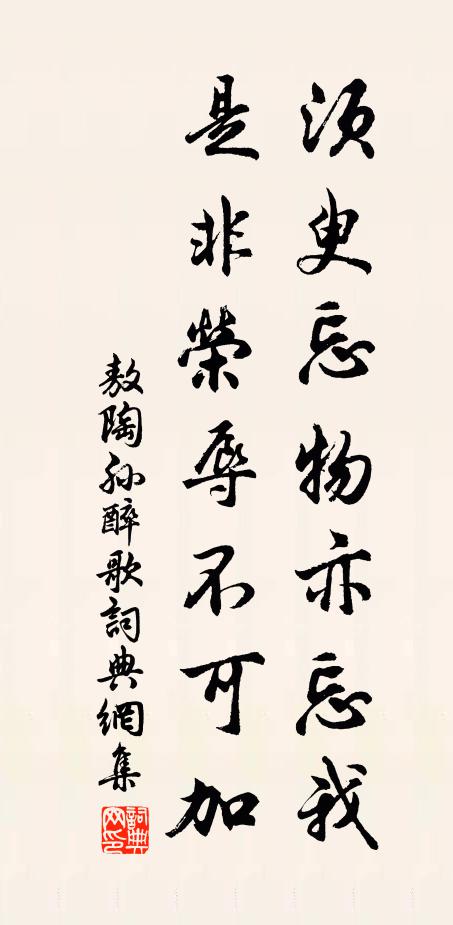 須臾忘物亦忘我
是非榮辱不可加
敖陶孫醉歌詞典網集
詞典網印